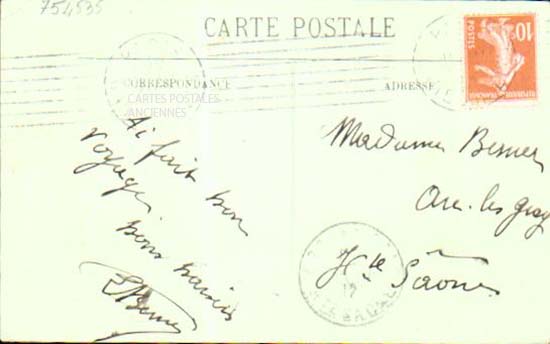 754535
CARTE POSTALE
CORRESPONDANCE
ADRESSE
CARTES POSTALES
ANCIENNES
10
POSTES
REPUBLIQUE FRANÇAISE
Ai fait bon
voyage
bons baisers
Madame Besner
Arc-les-Gray
Hte Saône